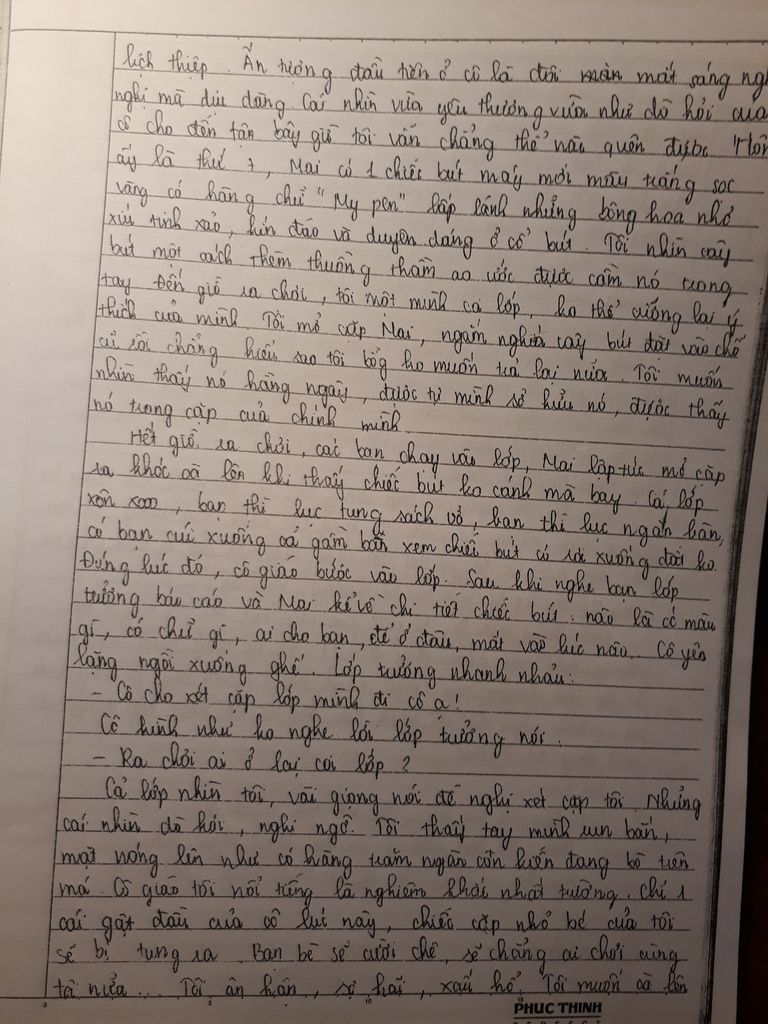 lịch thiệp. Ấn tượng đầu tiên ở cô là đôi mắt sáng ngh
nghị mà dịu dàng. Cái nhìn vừa yêu thương vừa như dò hỏi của
cô cho đến tận bây giờ tôi vẫn chẳng thể nào quên được. Hôm
ấy là thứ 7, Mai có 1 chiếc bút máy mới màu trắng sọc
vàng có hàng chữ "My pen" lấp lánh những bông hoa nhỏ
xíu tinh xảo, kín đáo và duyên dáng ở cổ bút. Tôi nhìn cây
bút một cách thèm thuồng thầm ao ước được cầm nó trong
tay. Đến giờ ra chơi, tôi một mình coi lớp, ko thể cưỡng lại ý
thích của mình. Tôi mở cặp Mai, ngắm nghía cây bút đặt vào chỗ
cũ rồi chẳng hiểu sao tôi bỗg ko muốn trả lại nữa. Tôi muốn
nhìn thấy nó hàng ngày, được tự mình sở hữu nó, được thấy
nó trong cặp của chính mình.
Hết giờ ra chơi, các bạn chạy vào lớp, Mai lập tức mở cặp
ra khóc oà lên khi thấy chiếc bút ko cánh mà bay. Cả lớp
xôn xao, bạn thì lục tung sách vở, bạn thì lục ngăn bàn,
có bạn cúi xuống cả gầm bàn xem chiếc bút có rơi xuống đất ko.
Đúng lúc đó, cô giáo bước vào lớp. Sau khi nghe bạn lớp
trưởng báo cáo và Mai kể về chi tiết chiếc bút: nào là có màu
gì, có chữ gì, ai cho bạn, để ở đâu, mất vào lúc nào... Cô yên
lặng ngồi xuống ghế. Lớp trưởng nhanh nhảu:
- Cô cho xét cặp lớp mình đi cô ạ!
Cô hình như ko nghe lời lớp trưởng nói.
- Ra chơi ai ở lại coi lớp?
Cả lớp nhìn tôi, vài giọng nói đề nghị xét cặp tôi. Những
cái nhìn dò hỏi, nghi ngờ. Tôi thấy tay mình run bắn,
mặt nóng lên như có hàng trăm ngàn con kiến đang bò trên
má. Cô giáo tôi nổi tiếng là nghiêm khắc nhất trường. Chỉ 1
cái gật đầu của cô lúc này, chiếc cặp nhỏ bé của tôi
sẽ bị tung ra. Bạn bè sẽ cười chê, sẽ chẳng ai chơi cùng
ta nữa... Tôi ân hận, sợ hãi, xấu hổ. Tôi muốn oà lên
PHUC THINH